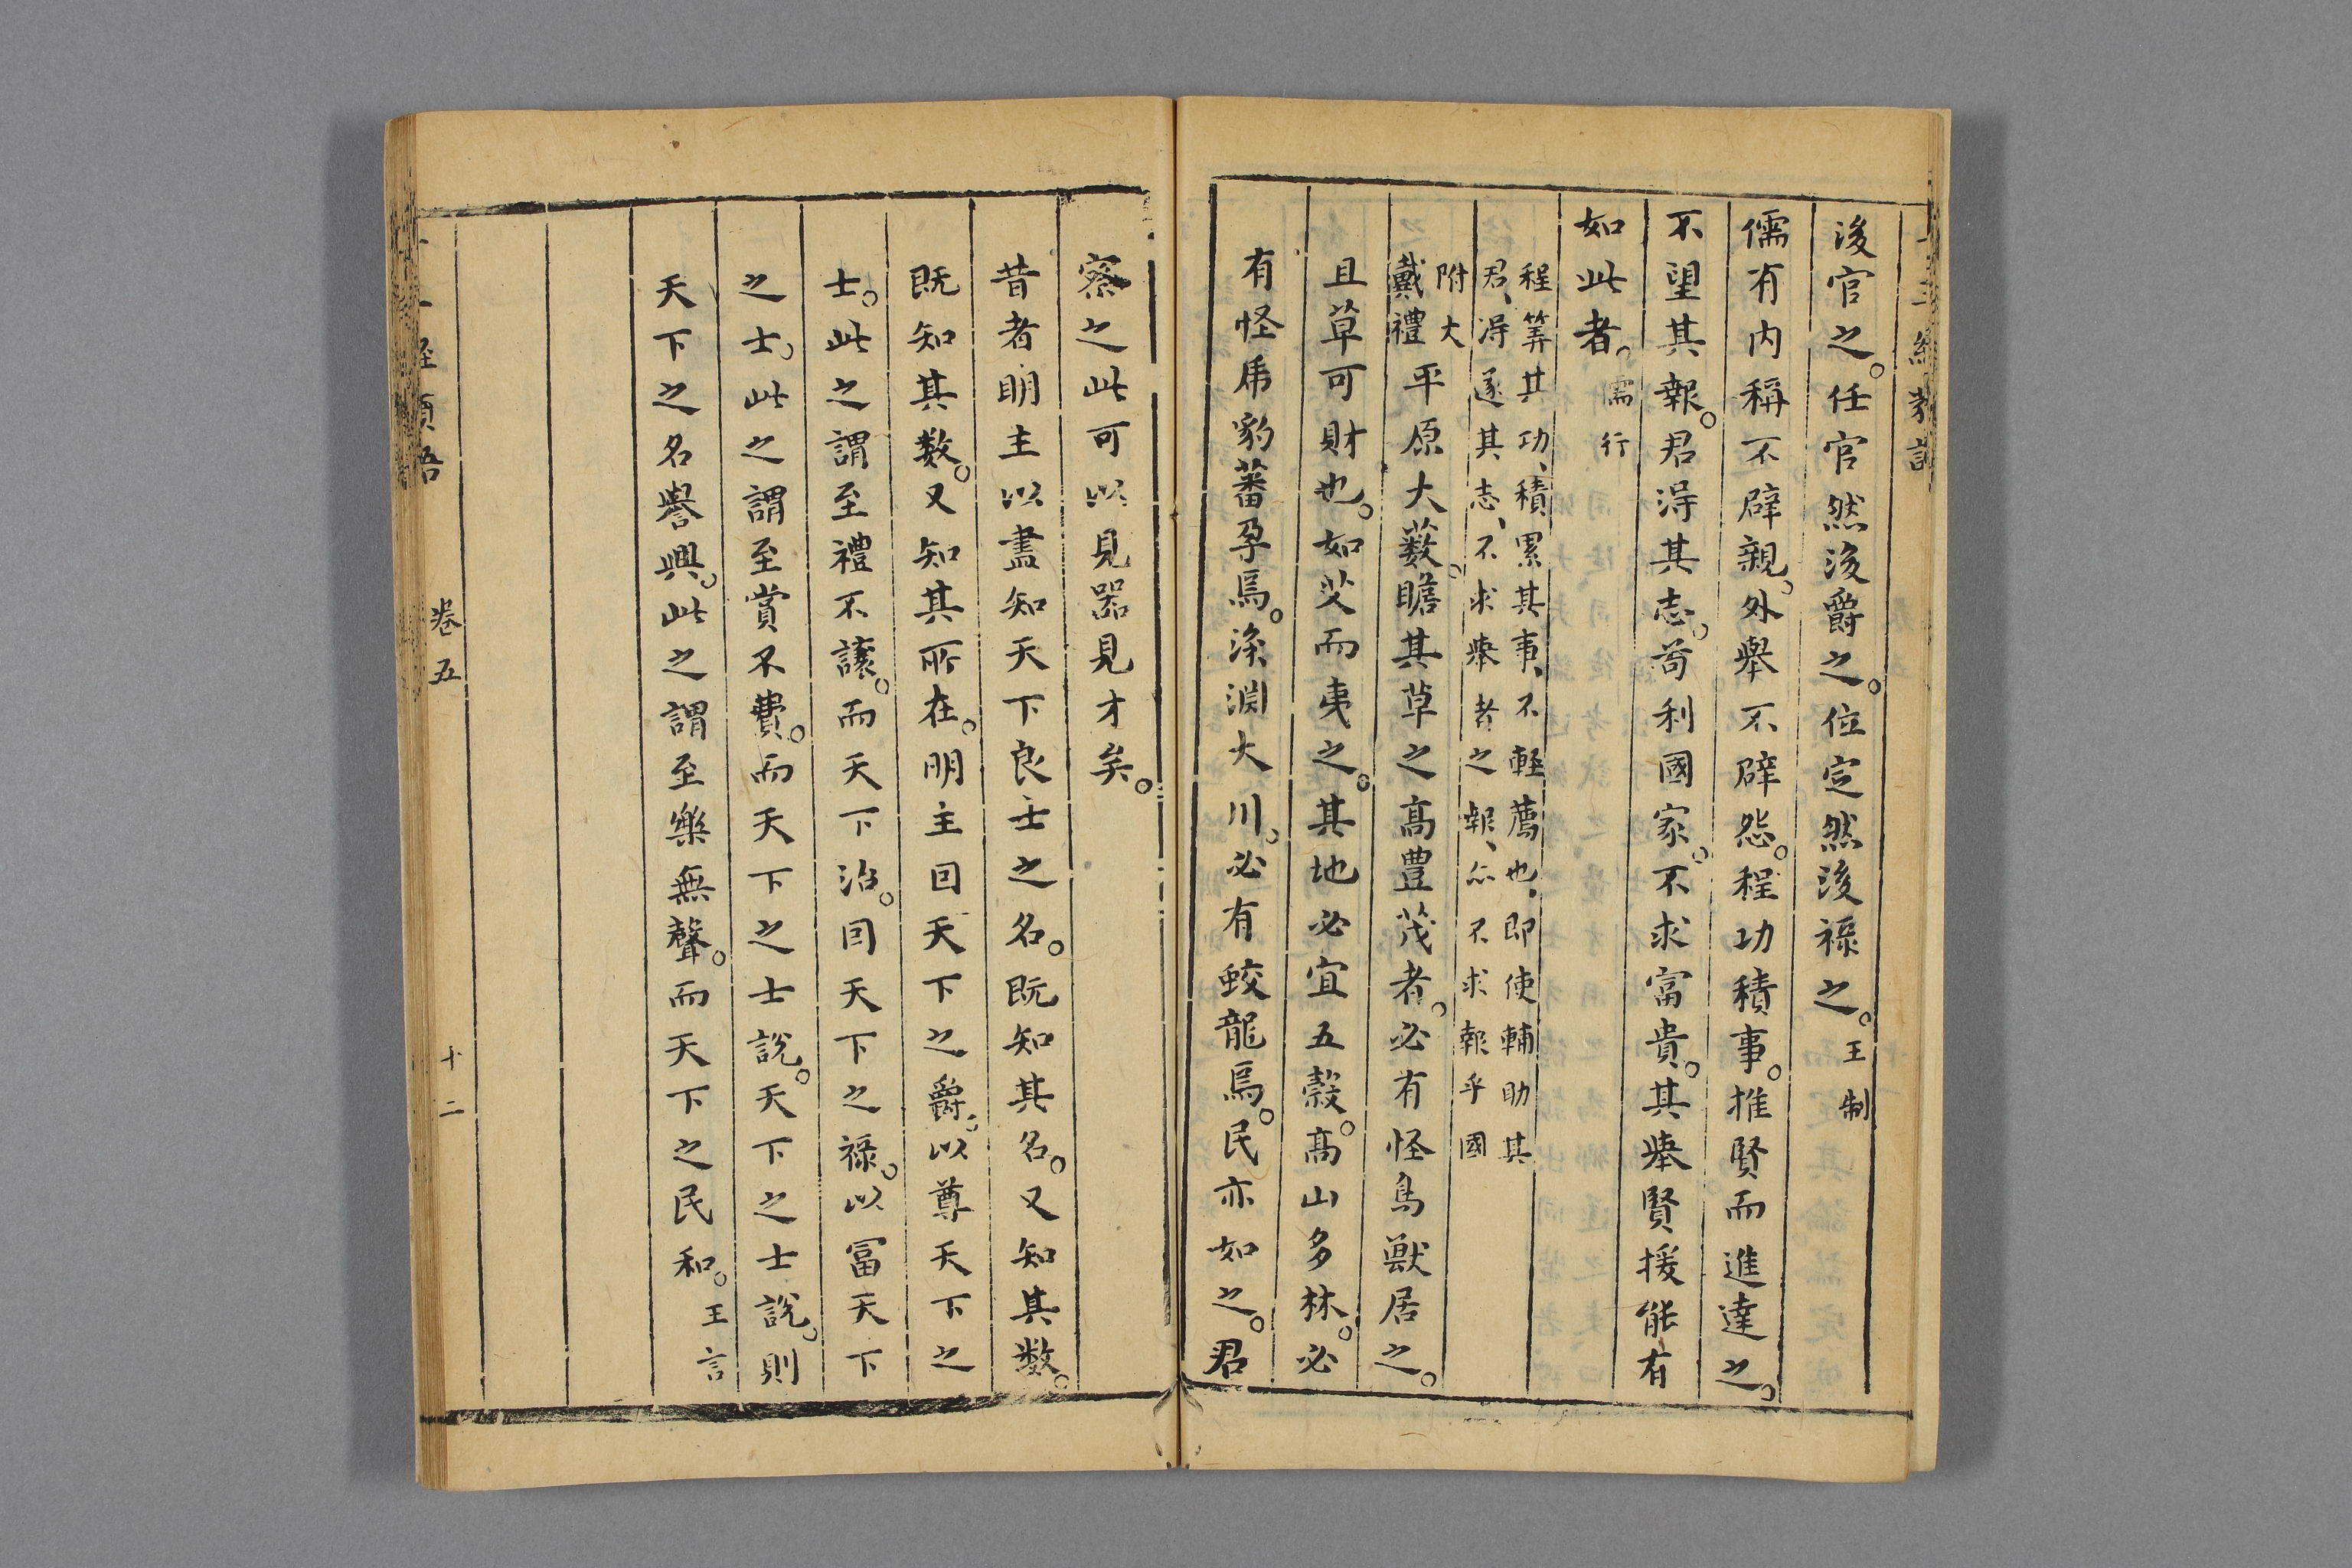 後官之。任官然後爵之。位定然後祿之。王制
儒有内稱不辟親。外舉不辟怨。程功積事。推賢而進達之。
不望其報。君得其志。苟利國家。不求富貴。其舉賢援能有
如此者。儒行
程筭其功、積累其事、不輕薦也、即使輔助其
君、得遂其志、不求舉者之報、亦不求報乎國
附大
戴禮
平原大薮。瞻其草之高豊茂者。必有怪鳥獸居之。
且草可財也。如艾而夷之。其地必宜五穀。高山多林。必
有怪虎豹蕃孕焉。深淵大川。必有蛟龍焉。民亦如之。君
察之此可以見器見才矣。
昔者明主以盡知天下良士之名。既知其名。又知其数。
既知其数。又知其所在。明主因天下之爵。以尊天下之
士。此之謂至禮不讓。而天下治。因天下之禄。以冨天下
之士。此之謂至賞不費。而天下之士說。天下之士說。則
天下之名譽興。此之謂至樂無聲。而天下之民和。王言
卷五
十二